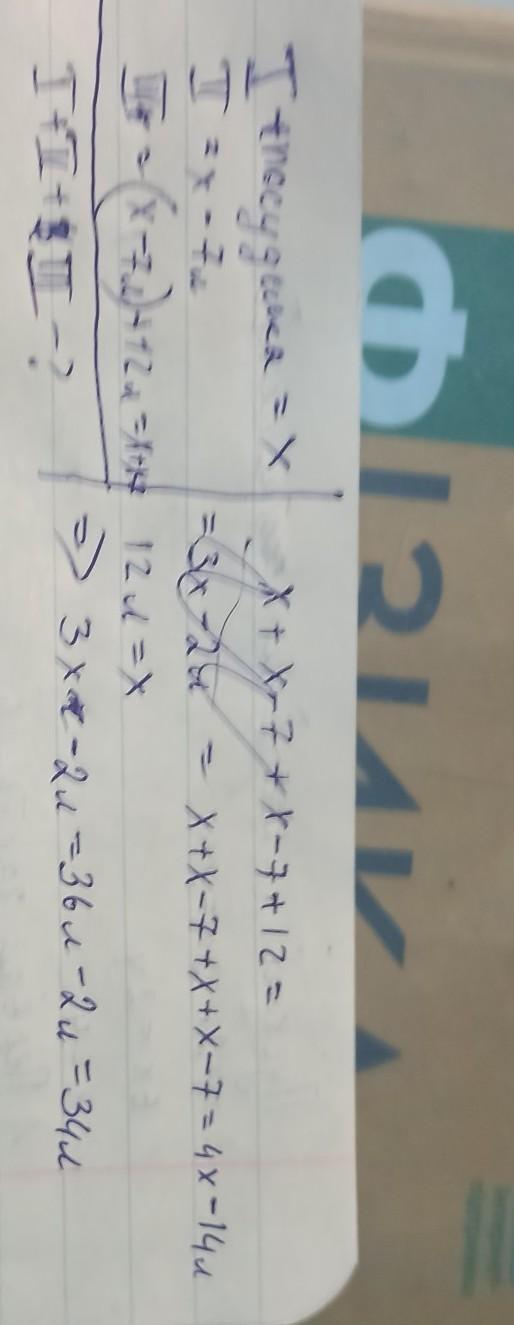 ФІЗИКА
I посудина = x
II = x - 7л
III = (x - 7л) + 12л = x+x-7
I + II + III - ?
x + x - 7 + x - 7 + 12 =
= 3x - 2л = x + x - 7 + x + x - 7 = 4x - 14л
12л = x
=> 3x - 2л = 36л - 2л = 34л